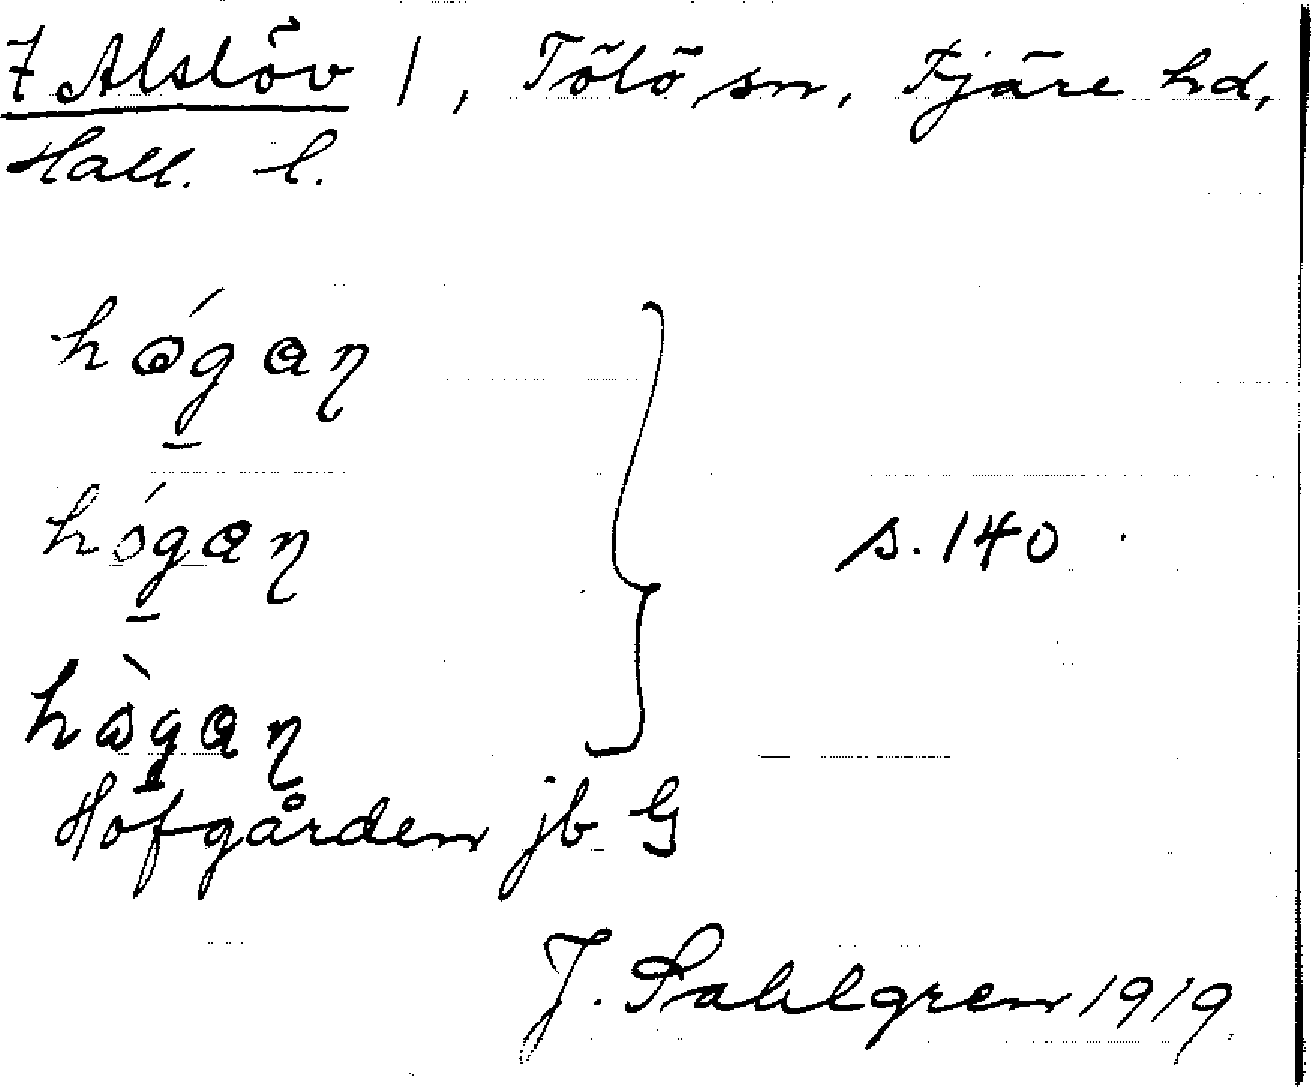 7 Alslöv 1, Tölö sn, Fjäre hd,
Hall. l.
hǿgan
hógan
s. 140
hògan
Hofgården jb G
J. Sahlgren 1919